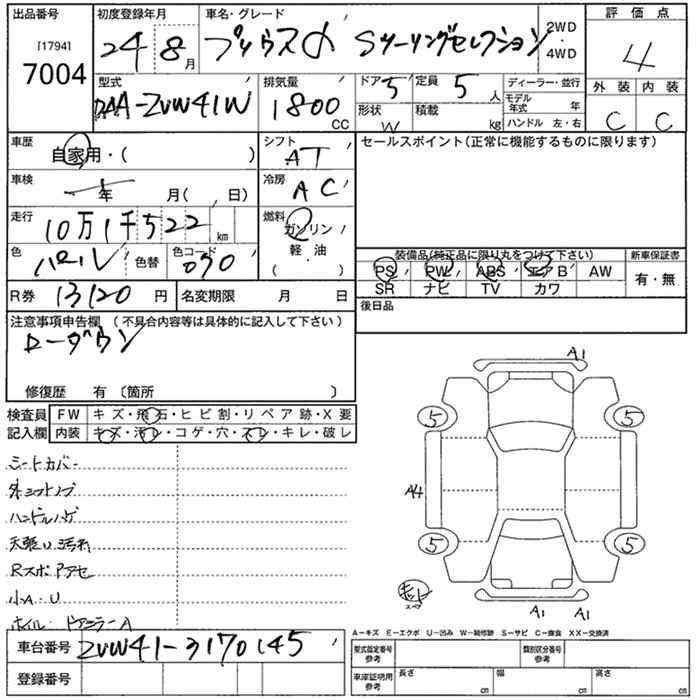 出品番号 初度登録年月 車名・グレード 2WD 評価点
[1794] 24 8月 プリウスα Sツーリングセレクション 4WD 4
7004
型式 排気量 ドア 5 定員 5人 ディーラー・並行 外装 内装
DAA-ZVW41W 1800CC 形状 W 積載 kg モデル年式 年 C C
ハンドル 左・右
車歴 自家用・( ) シフト AT セールスポイント(正常に機能するものに限ります)
車検 年 月( 、日) 冷房 AC
走行 10万1千522km 燃料 ガソリン
色 パール 色替 色コード 070 軽・油 ( ・ )
装備品(純正品に限り丸をつけて下さい) 新車保証書
PS PW ABS エアB AW 有・無
SR ナビ TV カワ
R券 13120円 名変期限 月 日 後日品
注意事項申告欄 (不具合内容等は具体的に記入して下さい)
ローダウン
修復歴 有 〔箇所 〕
検査員 FW キズ・飛石・ヒビ割・リペア跡・X要
記入欄 内装 キズ・汚レ・コゲ・穴・スレ・キレ・破レ
シートカバー
ハンドルハゲ
天張り汚れ
Rスポアアセ
小A.U
ホイル・ドアミラーA
A1
5 5
A4
5 5
キット
A1 A1
A-キズ E-エクボ U-凹み W-補修跡 S-サビ C-腐食 XX-交換済
車台番号 ZVW41-3170145 型式指定番号 参考 類別区分番号 参考
登録番号 車庫証明用 参考 長さ cm 幅 cm 高さ cm